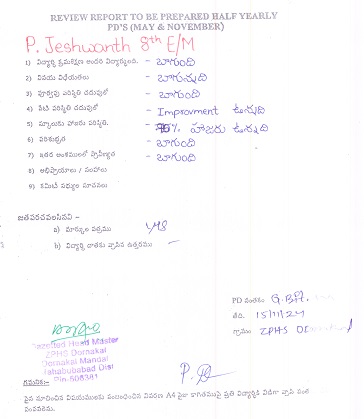 REVIEW REPORT TO BE PREPARED HALF YEARLY
PD'S (MAY & NOVEMBER)
P. Jeshwanth 8th E/M
1) విద్యార్థి క్రమశిక్షణ అందరి విద్యార్థులది. - బాగుంది
2) విషయ విధేయతలు - బాగున్నది
3) పూర్వపు పరిస్థితి చదువులో - బాగుంది
4) నేటి పరిస్థితి చదువులో - Improvment ఉన్నది
5) స్కూలుకు హాజరు పరిస్థితి. - % హాజరు ఉన్నది
6) పరిశుభ్రత - బాగుంది
7) ఇతర అంశములలో ప్రావీణ్యత - బాగుంది
8) అభిప్రాయాలు / సలహాలు
9) కమిటీ సభ్యుల సూచనలు
జతపరచవలసినవి -
a) మార్కుల పత్రము yes
b) విద్యార్థి దాతకు వ్రాసిన ఉత్తరము -
PD సంతకం
తేది. 15/11/24
గ్రామం ZPHS
Gazetted Head Master
ZPHS Dornakal
Dornakal Mandal
Mahabubabad Dist
Pin-506381
గమనిక:-
పైన సూచించిన విషయములకు సంబంధించిన వివరణ A4 సైజు కాగితముపై ప్రతి విద్యార్థికి విడిగా వ్రాసి పంపవలెను.